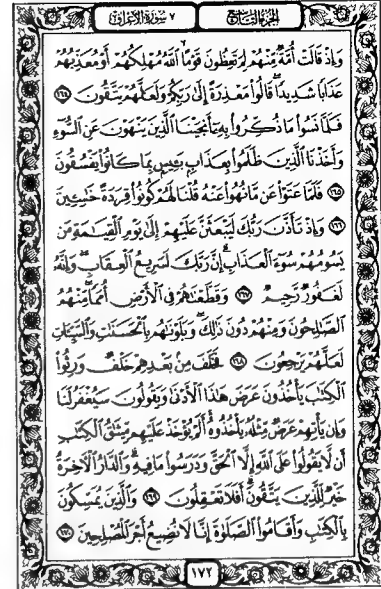 الجزء التاسع
٧ سورة الأعراف
وَإِذْ قَالَتْ أُمَّةٌ مِّنْهُمْ لِمَ تَعِظُونَ قَوْمًا اللَّهُ مُهْلِكُهُمْ أَوْ مُعَذِّبُهُمْ
عَذَابًا شَدِيدًا قَالُوا مَعْذِرَةً إِلَىٰ رَبِّكُمْ وَلَعَلَّهُمْ يَتَّقُونَ ١٦٤
فَلَمَّا نَسُوا مَا ذُكِّرُوا بِهِ أَنجَيْنَا الَّذِينَ يَنْهَوْنَ عَنِ السُّوءِ
وَأَخَذْنَا الَّذِينَ ظَلَمُوا بِعَذَابٍ بَئِيسٍ بِمَا كَانُوا يَفْسُقُونَ
١٦٥ فَلَمَّا عَتَوْا عَن مَّا نُهُوا عَنْهُ قُلْنَا لَهُمْ كُونُوا قِرَدَةً خَاسِئِينَ
١٦٦ وَإِذْ تَأَذَّنَ رَبُّكَ لَيَبْعَثَنَّ عَلَيْهِمْ إِلَىٰ يَوْمِ الْقِيَامَةِ مَن
يَسُومُهُمْ سُوءَ الْعَذَابِ إِنَّ رَبَّكَ لَسَرِيعُ الْعِقَابِ وَإِنَّهُ
لَغَفُورٌ رَّحِيمٌ ١٦٧ وَقَطَّعْنَاهُمْ فِي الْأَرْضِ أُمَمًا مِّنْهُمُ
الصَّالِحُونَ وَمِنْهُمْ دُونَ ذَٰلِكَ وَبَلَوْنَاهُم بِالْحَسَنَاتِ وَالسَّيِّئَاتِ
لَعَلَّهُمْ يَرْجِعُونَ ١٦٨ فَخَلَفَ مِن بَعْدِهِمْ خَلْفٌ وَرِثُوا
الْكِتَٰبَ يَأْخُذُونَ عَرَضَ هَٰذَا الْأَدْنَىٰ وَيَقُولُونَ سَيُغْفَرُ لَنَا
وَإِن يَأْتِهِمْ عَرَضٌ مِّثْلُهُ يَأْخُذُوهُ أَلَمْ يُؤْخَذْ عَلَيْهِم مِّيثَٰقُ الْكِتَٰبِ
أَن لَّا يَقُولُوا عَلَى اللَّهِ إِلَّا الْحَقَّ وَدَرَسُوا مَا فِيهِ وَالدَّارُ الْآخِرَةُ
خَيْرٌ لِّلَّذِينَ يَتَّقُونَ أَفَلَا تَعْقِلُونَ ١٦٩ وَالَّذِينَ يُمَسِّكُونَ
بِالْكِتَٰبِ وَأَقَامُوا الصَّلَوٰةَ إِنَّا لَا نُضِيعُ أَجْرَ الْمُصْلِحِينَ ١٧٠
١٧٢